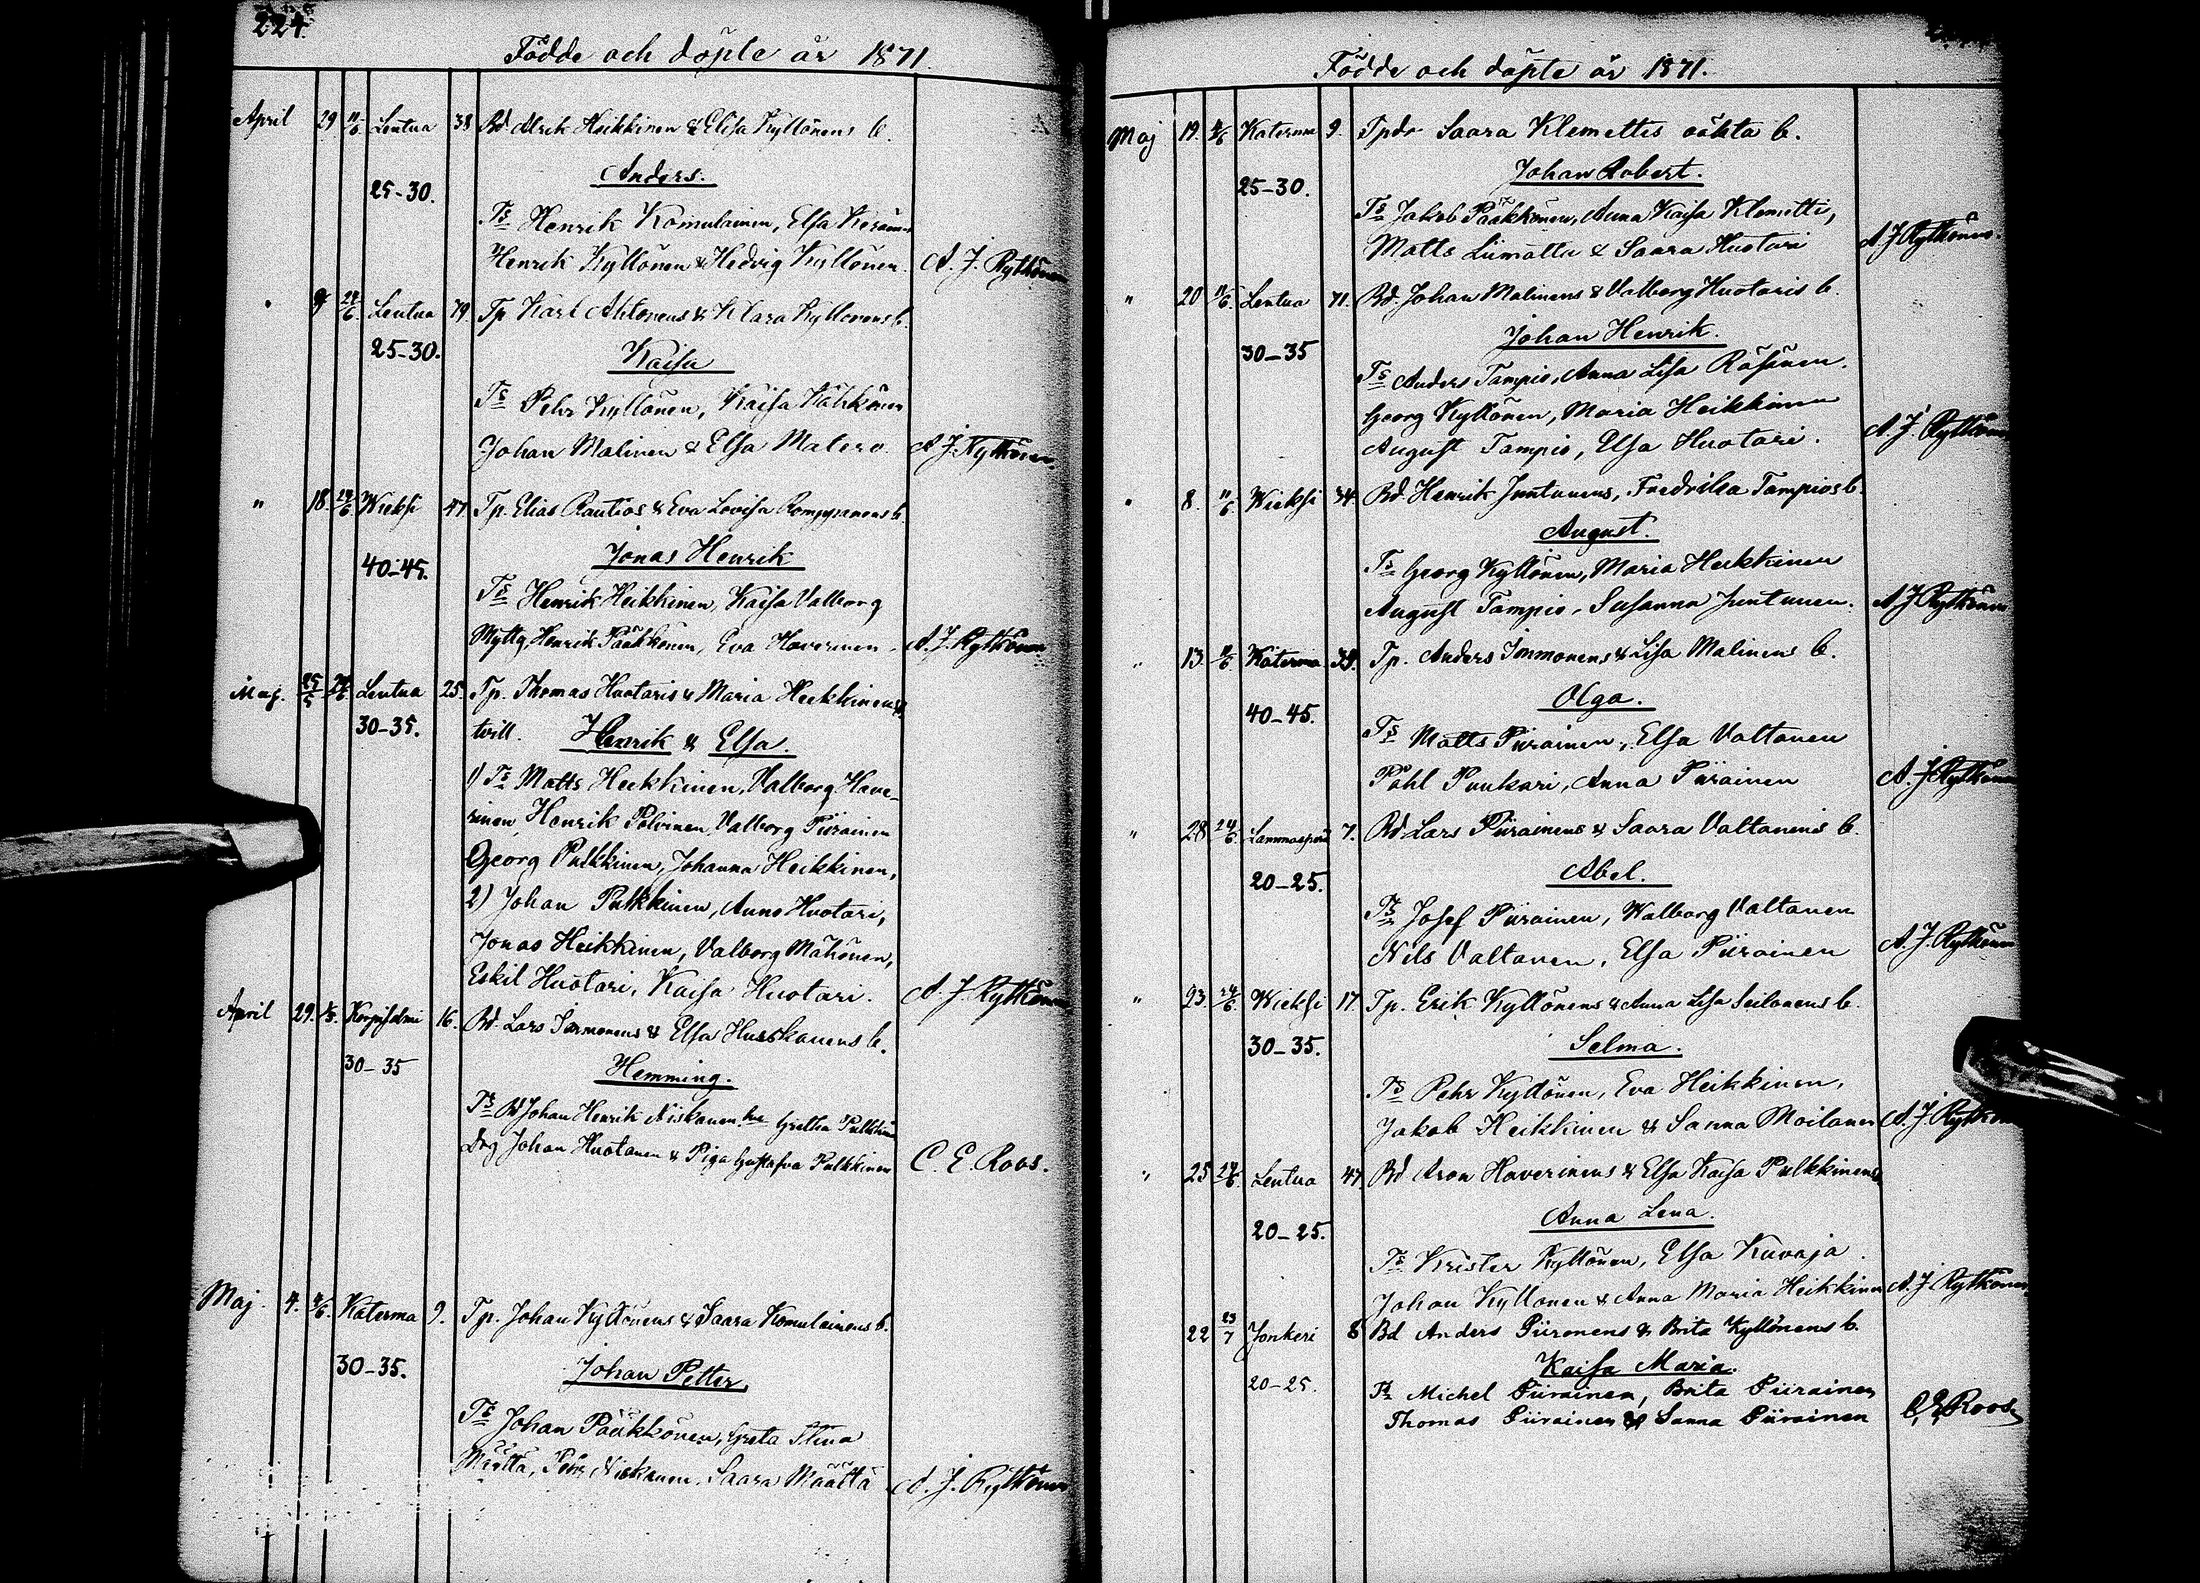 224.
Födde och döpte år 1871.
April 29 11/6 Lentua 38 Bd Alrik Heikkinen & Elisa Kyllönens b.
Anders.
25-30.
Ts Henrik Komulainen, Elsa Keränen
Henrik Kyllönen & Hedvig Kyllönen. A. J. Rytkönen
" 9 24/6 Lentua 79 Tp Karl Ahtonens & Klara Kyllönens b.
25-30. Kaisa
Ts Pehr Kyllönen, Kaisa Kähkönen
Johan Malinen & Elsa Matero. A. J. Rytkönen.
" 18. 24/6 Wieksi 47. Tp. Elias Rautios & Eva Lovisa Romppanens b.
Jonas Henrik
40-45.
Ts Henrik Heikkinen, Kaisa Valborg
Mylly, Henrik Pääkkönen, Eva Haverinen. A. J. Rytkönen
Maj. 25/5 24/6 Lentua 25. Tp. Thomas Huotaris & Maria Heikkinens b.
30-35. tvill. Henrik & Elsa.
1) Ts Matts Heikkinen, Valborg Have-
rinen, Henrik Polvinen, Valborg Piirainen
Georg Pulkkinen, Johanna Heikkinen,
2) Johan Pulkkinen, Anna Huotari,
Jonas Heikkinen, Valborg Mähönen,
Eskil Huotari, Kaisa Huotari. A. J. Rytkönen
April 29. 1/5. Korpisalmi 16. Bd. Lars Immonens & Elsa Huuskonens b.
30-35 Hemming.
Ts Bd Johan Henrik Niskanen, hu Gretha Pulkkinen
Drg Johan Huotanen & Piga Gustafva Pulkkinen C. E. Roos.
Maj. 4. 4/6. Katerma 9. Tp. Johan Kyllönens & Saara Komulainens b.
30-35. Johan Petter.
Ts Johan Pääkkönen, Greta Stina
Määttä, Pehr Niskanen, Saara Määttä A. J. Rytkönen
Födde och döpte år 1871.
Maj 19. 4/6 Katerma 9. Tpdr Saara Klemettis oäkta b.
25-30. Johan Robert.
Ts Jakob Pääkkönen, Anna Kaisa Klemetti,
Matts Liimatta & Saara Huotari A J Rytkönen.
" 20 11/6. Lentua 71. Bd. Johan Malinens & Valborg Huotaris b.
30-35 Johan Henrik.
Ts Anders Tampio, Anna Lisa Räsänen.
Georg Kyllönen, Maria Heikkinen
August Tampio, Elsa Huotari. A. J. Rytkönen
" 8. 11/6. Wieksi 34. Bd. Henrik Juntunens, Fredrika Tampios b.
August.
Ts Georg Kyllönen, Maria Heikkinen
August Tampio, Susanna Juntunen. A J Rytkönen
" 13. 11/6 Katerma 39. Tp. Anders Immonens & Lisa Malinens b.
Olga.
40-45.
Ts Matts Piirainen, Elsa Valtanen
Påhl Puukari, Anna Piirainen A. J. Rytkönen
" 28 24/6. Lammasperä 7. Bd Lars Piirainens & Saara Valtanens b.
20-25. Abel.
Ts Josef Piirainen, Walborg Valtanen
Nils Valtanen, Elsa Piirainen A. J. Rytkönen
" 23 24/6. Wieksi 17. Tp. Erik Kyllönens & Anna Lisa Seilonens b.
30-35. Selma.
Ts Pehr Kyllönen, Eva Heikkinen,
Jakob Heikkinen & Sanna Moilanen A. J. Rytkönen
" 25 24/6. Lentua 47. Bd Aron Haverinens & Elsa Kaisa Pulkkinens
20-25. Anna Lena.
Ts Krister Kyllönen, Elsa Kuvaja.
Johan Kyllönen & Anna Maria Heikkinen A. J. Rytkönen
22 23/7 Jonkeri 8 Bd Anders Piironens & Brita Kyllönens b.
20-25. Kaisa Maria.
Ts Michel Piirainen, Brita Piirainen
Thomas Piirainen & Sanna Piirainen C. E. Roos